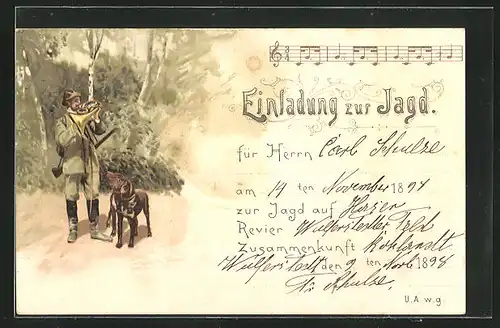 Einladung zur Jagd.
für Herrn Carl Schulze
am 14 ten November 1897
zur Jagd auf Hasen
Revier Wulferstedter Feld
Zusammenkunft
Wulferstedt den 9 ten Novb 1898
Fr. Schulze.
U. A. w. g.